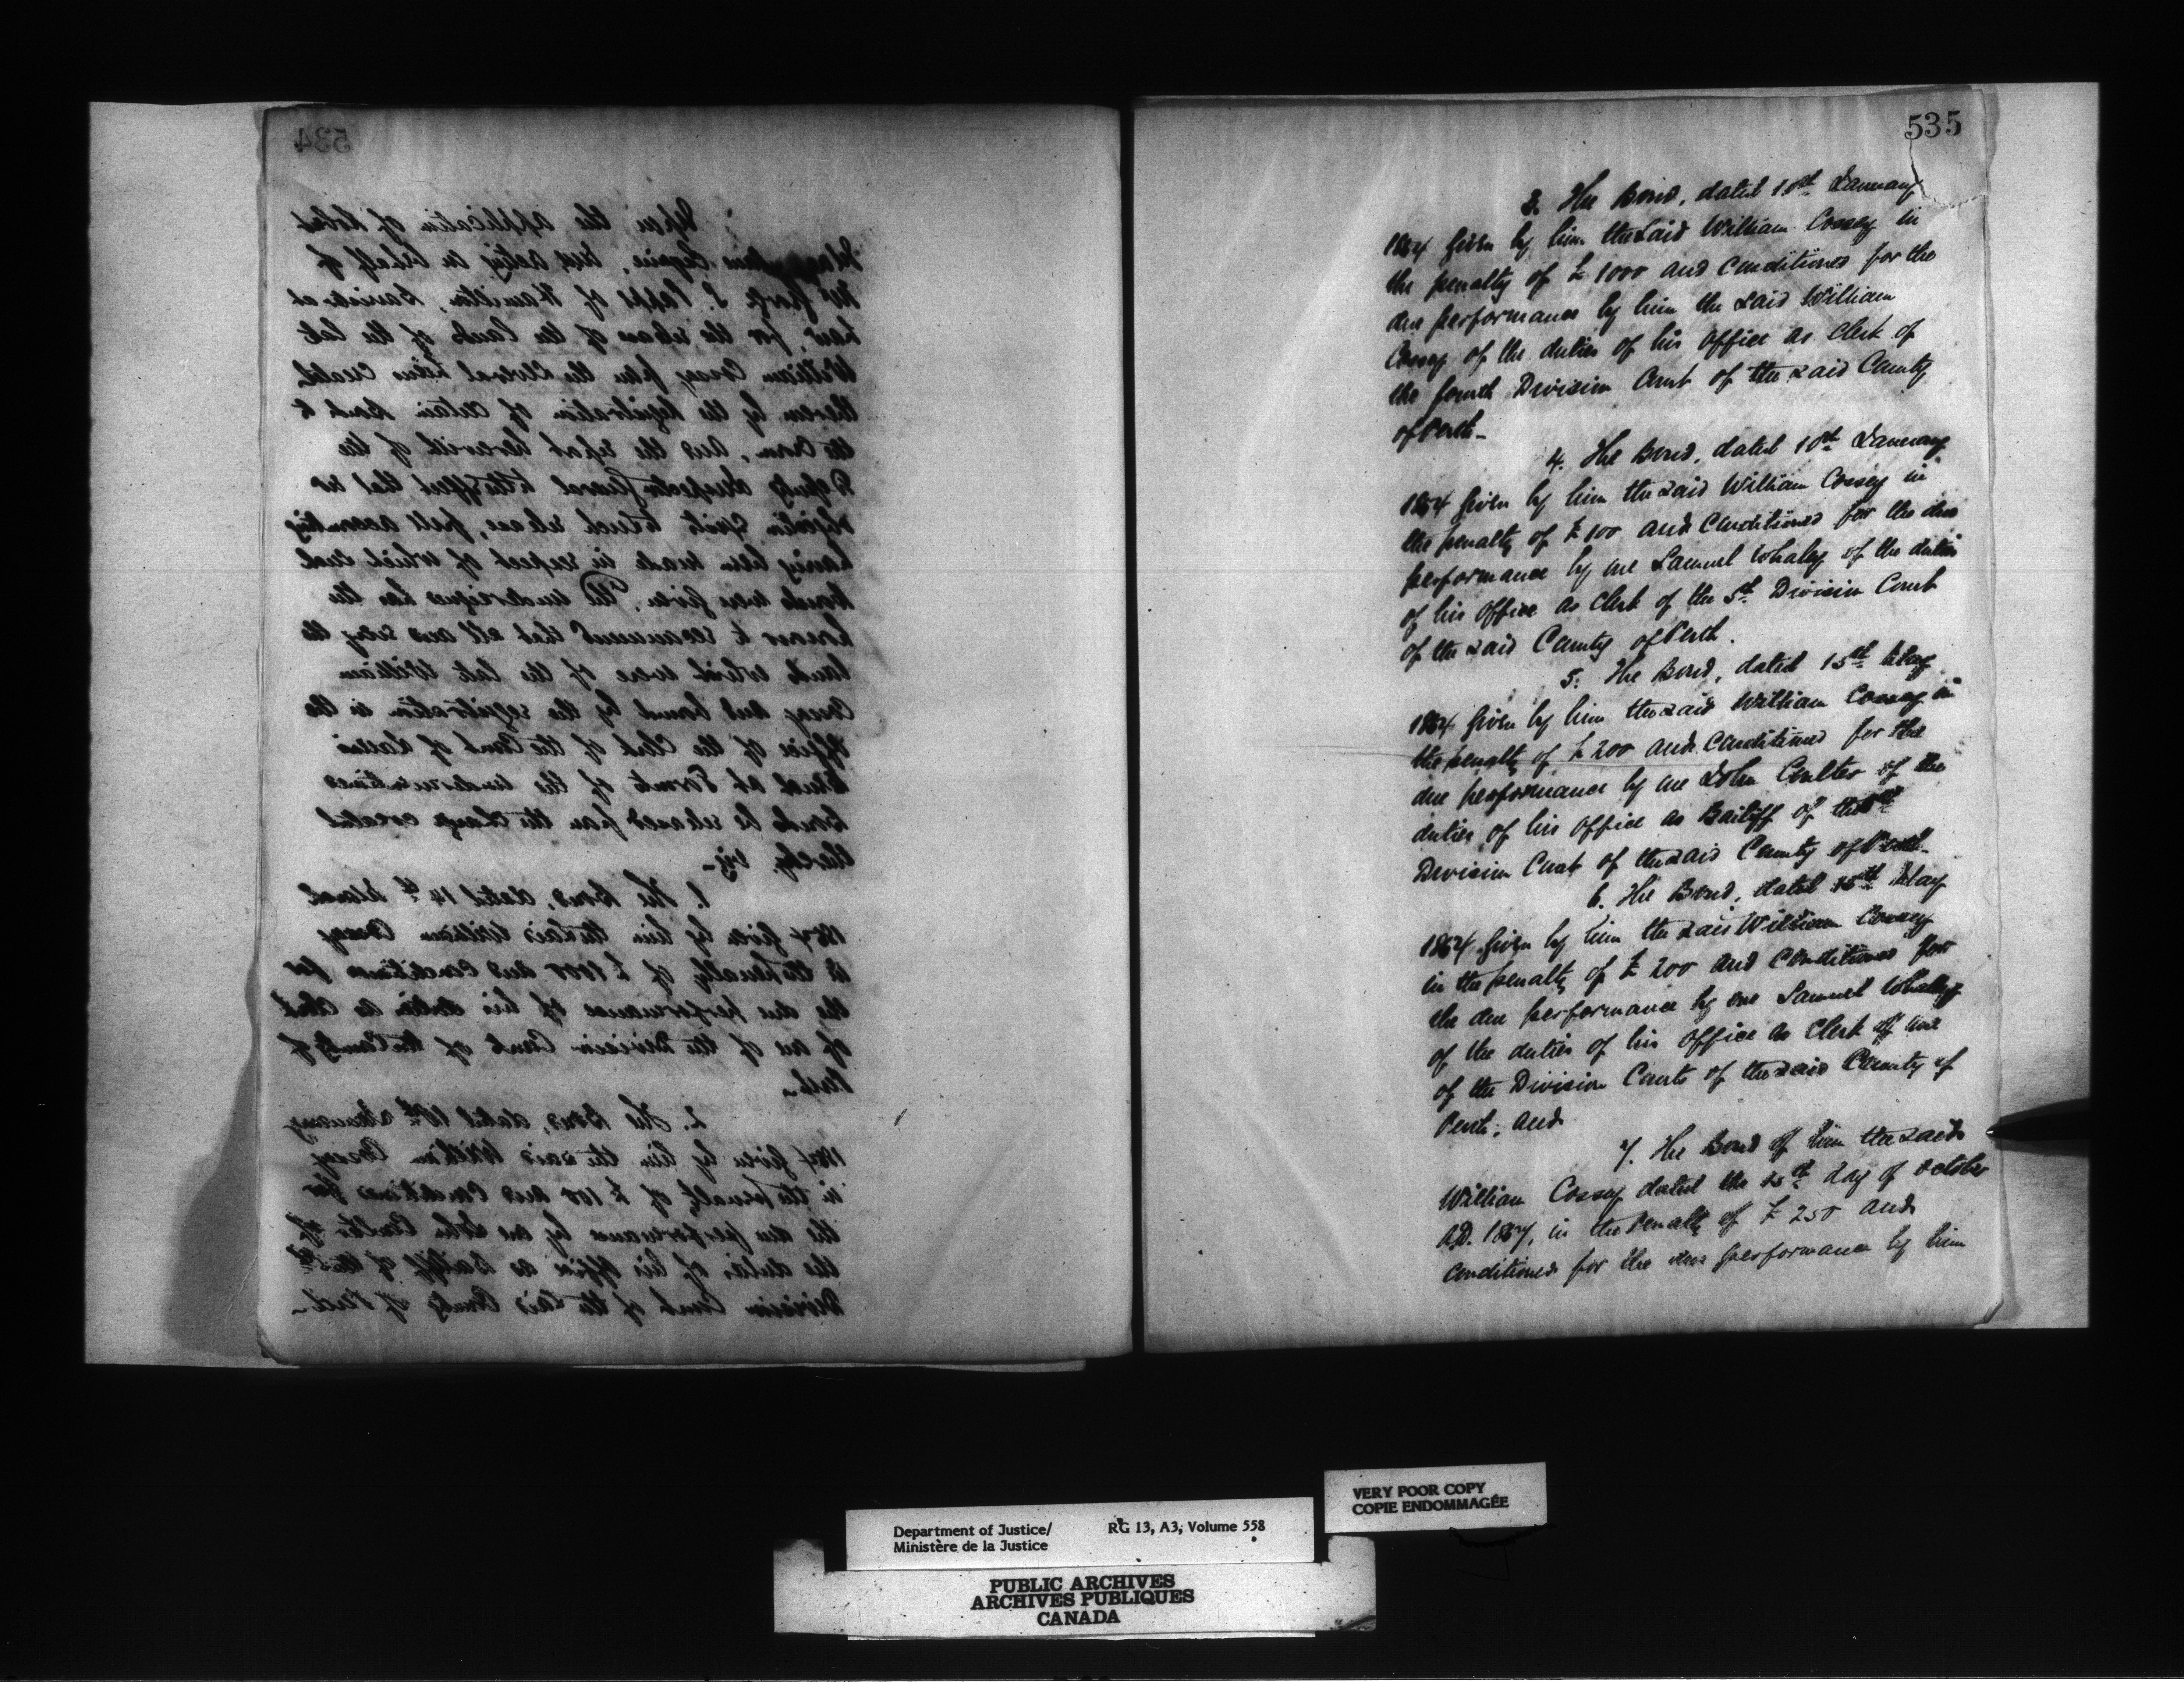 534
Upon the application of Robert
Esquire, and acting on behalf of
Mr George S. Papps of Hamilton, Barrister at
Law for the release of the lands of the late
William Cossey from the several liens created
thereon by the registration of certain Bonds to
the Crown, and the report herewith of the
Deputy Inspector General to the effect that no
objection exists to such release, full accounting
having been made in respect of which such
bonds were given, The undersigned has the
honour to recommend that all and every the
lands which were of the late William
Cossey and bound by the registration in the
Office of the Clerk of the Court of Queen's
Bench at Toronto of the undermentioned
bonds be released from the charge created
thereby, viz-
1. The Bond, dated 14th March
given by him the said William Cossey
in the penalty of £1000 and conditioned for
the due performance of his duties as Clerk
of one of the Division Courts of the County of
Perth-
2. The Bond, dated 10th January
given by him the said William Cossey
in the penalty of £100 and conditioned for
the due performance by one John Coulter of
the duties of his office as Bailiff of the
Division Court of the said County of Perth-
535
3. The Bond, dated 10th January
1854 given by him the said William Cossey in
the penalty of £1000 and conditioned for the
due performance by him the said William
Cossey of the duties of his office as Clerk of
the fourth Division Court of the said County
of Perth-
4. The Bond, dated 10th January
1854 given by him the said William Cossey in
the penalty of £100 and conditioned for the due
performance by one Samuel Whaley of the duties
of his office as Clerk of the 5th Division Court
of the said County of Perth.
5. The Bond, dated 15th May
given by him the said William Cossey in
the penalty of £200 and conditioned for the
due performance by one John Coulter of the
duties of his office as Bailiff of the
Division Court of the said County of Perth-
6. The Bond, dated 15th May
given by him the said William Cossey
in the penalty of £200 and conditioned for
the due performance by one Samuel Whaley
of the duties of his office as Clerk of one
of the Division Courts of the said County of
Perth; and
7. The Bond of him the said
William Cossey dated the 15th day of October
A.D. in the penalty of £250 and
conditioned for the due performance by him
VERY POOR COPY
COPIE ENDOMMAGÉE
Department of Justice/ RG 13, A3, Volume 558
Ministère de la Justice
PUBLIC ARCHIVES
ARCHIVES PUBLIQUES
CANADA